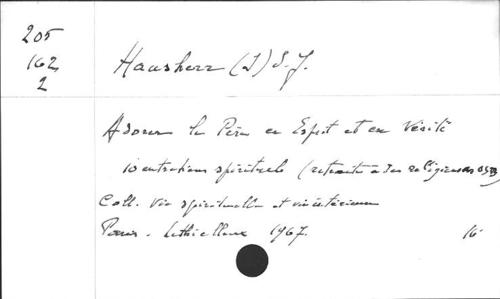 205
162
2
Hausherr (I) S.J.
Adorer le Père en Esprit et en Vérité
10 entretiens spirituels (retraite à des religieuses OSB)
Coll. Vie spirituelle et vie intérieure
Paris - Lethielleux 1967. 16°